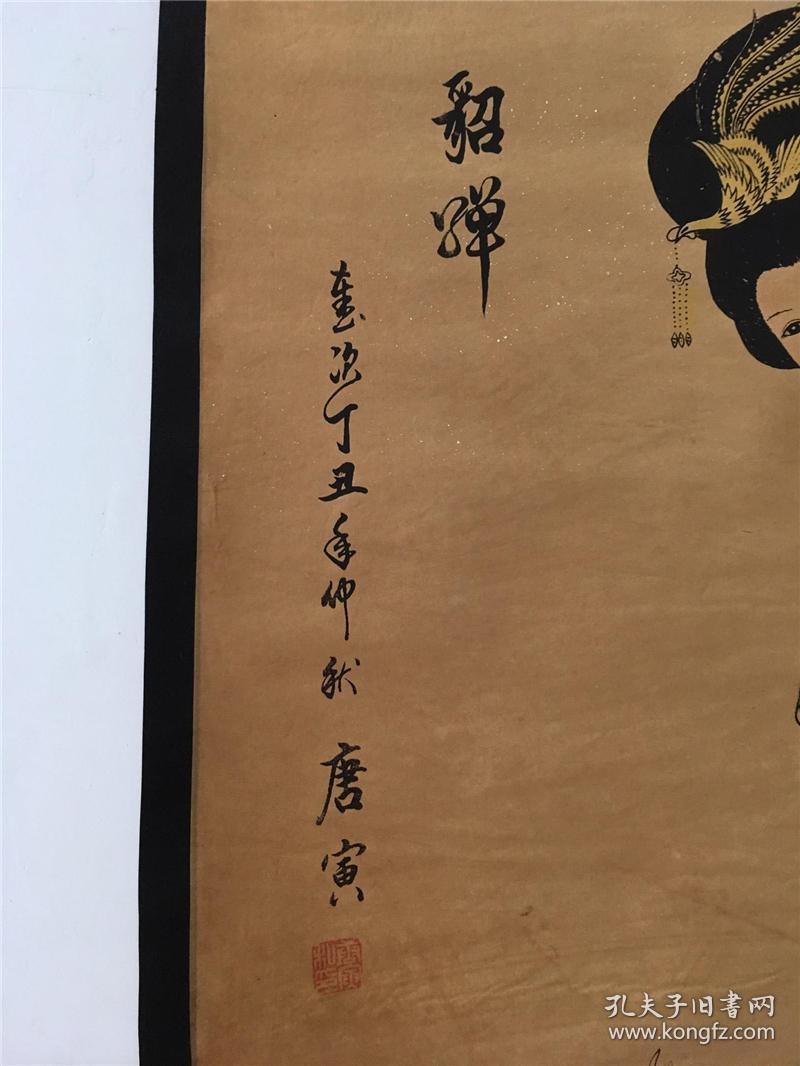 貂蝉
岁次丁丑年仲秋 唐寅
孔夫子旧書网
www.kongfz.com